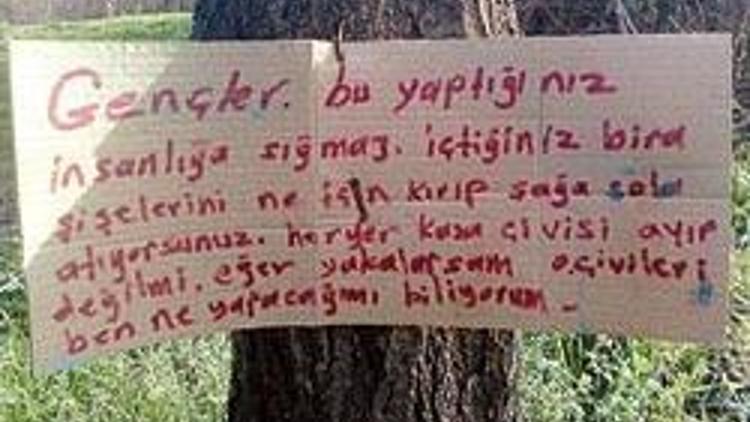 Gençler. bu yaptığınız
insanlığa sığmaz. içtiğiniz bira
şişelerini ne için kırıp sağa sola
atıyorsunuz. heryer kasa çivisi ayıp
değilmi. eğer yakalarsam o çivileri
ben ne yapacağımı biliyorum -